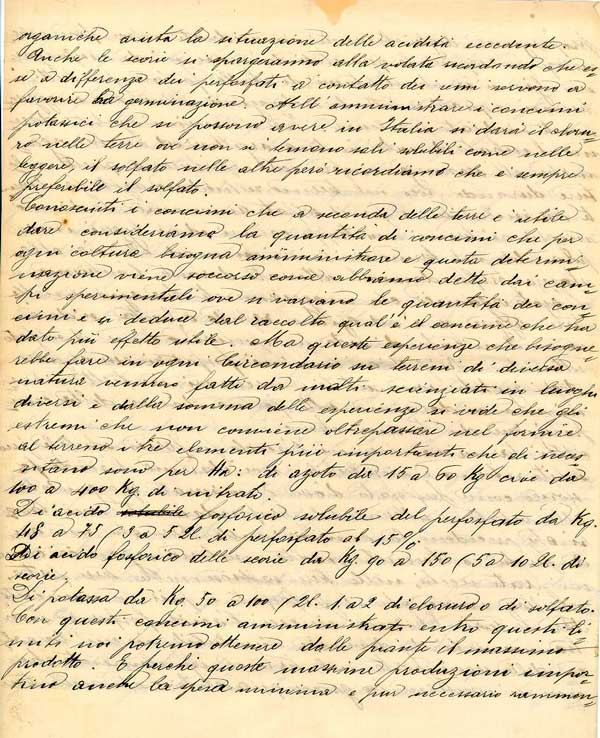 organiche aiuta la situazione delle acidità eccedente.
Anche le scorie si spargeranno alla volata ricordando che es=
se a differenza dei perfosfati a contatto dei semi servono a
favorire la germinazione. Nell' amministrare i concimi
potassici che si possono avere in Italia si darà il cloru=
ro nelle terre ove non si temono sali solubili come nelle
leggere, il solfato nelle altre però ricordiamo che è sempre
preferibile il solfato.
Conosciuti i concimi che a seconda delle terre è utile
dare consideriamo la quantità di concimi che per
ogni coltura bisogna amministrare e questa determi=
nazione viene soccorsa come abbiamo detto dai cam=
pi sperimentali ove si variano le quantità dei con=
cimi e si deduce dal raccolto qual'è il concime che ha
dato più effetto utile. Ma queste esperienze che bisogne=
rebbe fare in ogni Circondario su terreni di diversa
natura vennero fatte da molti scienziati in luochi
diversi e dalla somma delle esperienze si vide che gli
estremi che non conviene oltrepassare nel fornire
al terreno i tre elementi più importanti che di neces
sitano sono per Ha: di azoto da 15 a 60 Kg cioè da
100 a 400 Kg. di nitrato.
Di acido solubile fosforico solubile del perfosfato da Kg.
48 a 75 (3 a 5 Ql. di perfosfato at 15%.
Di acido fosforico delle scorie da Kg. 90 a 150 (5 a 10 Ql. di
scorie.
Di potassa da Kg 50 a 100 (Ql. 1 a 2 di cloruro o di solfato.
Con questi concimi amministrati entro questi li=
miti noi potremo ottenere dalle piante il massimo
prodotto. E perchè queste massime produzioni impor=
tino anche la spesa minima è pur necessario rammen=